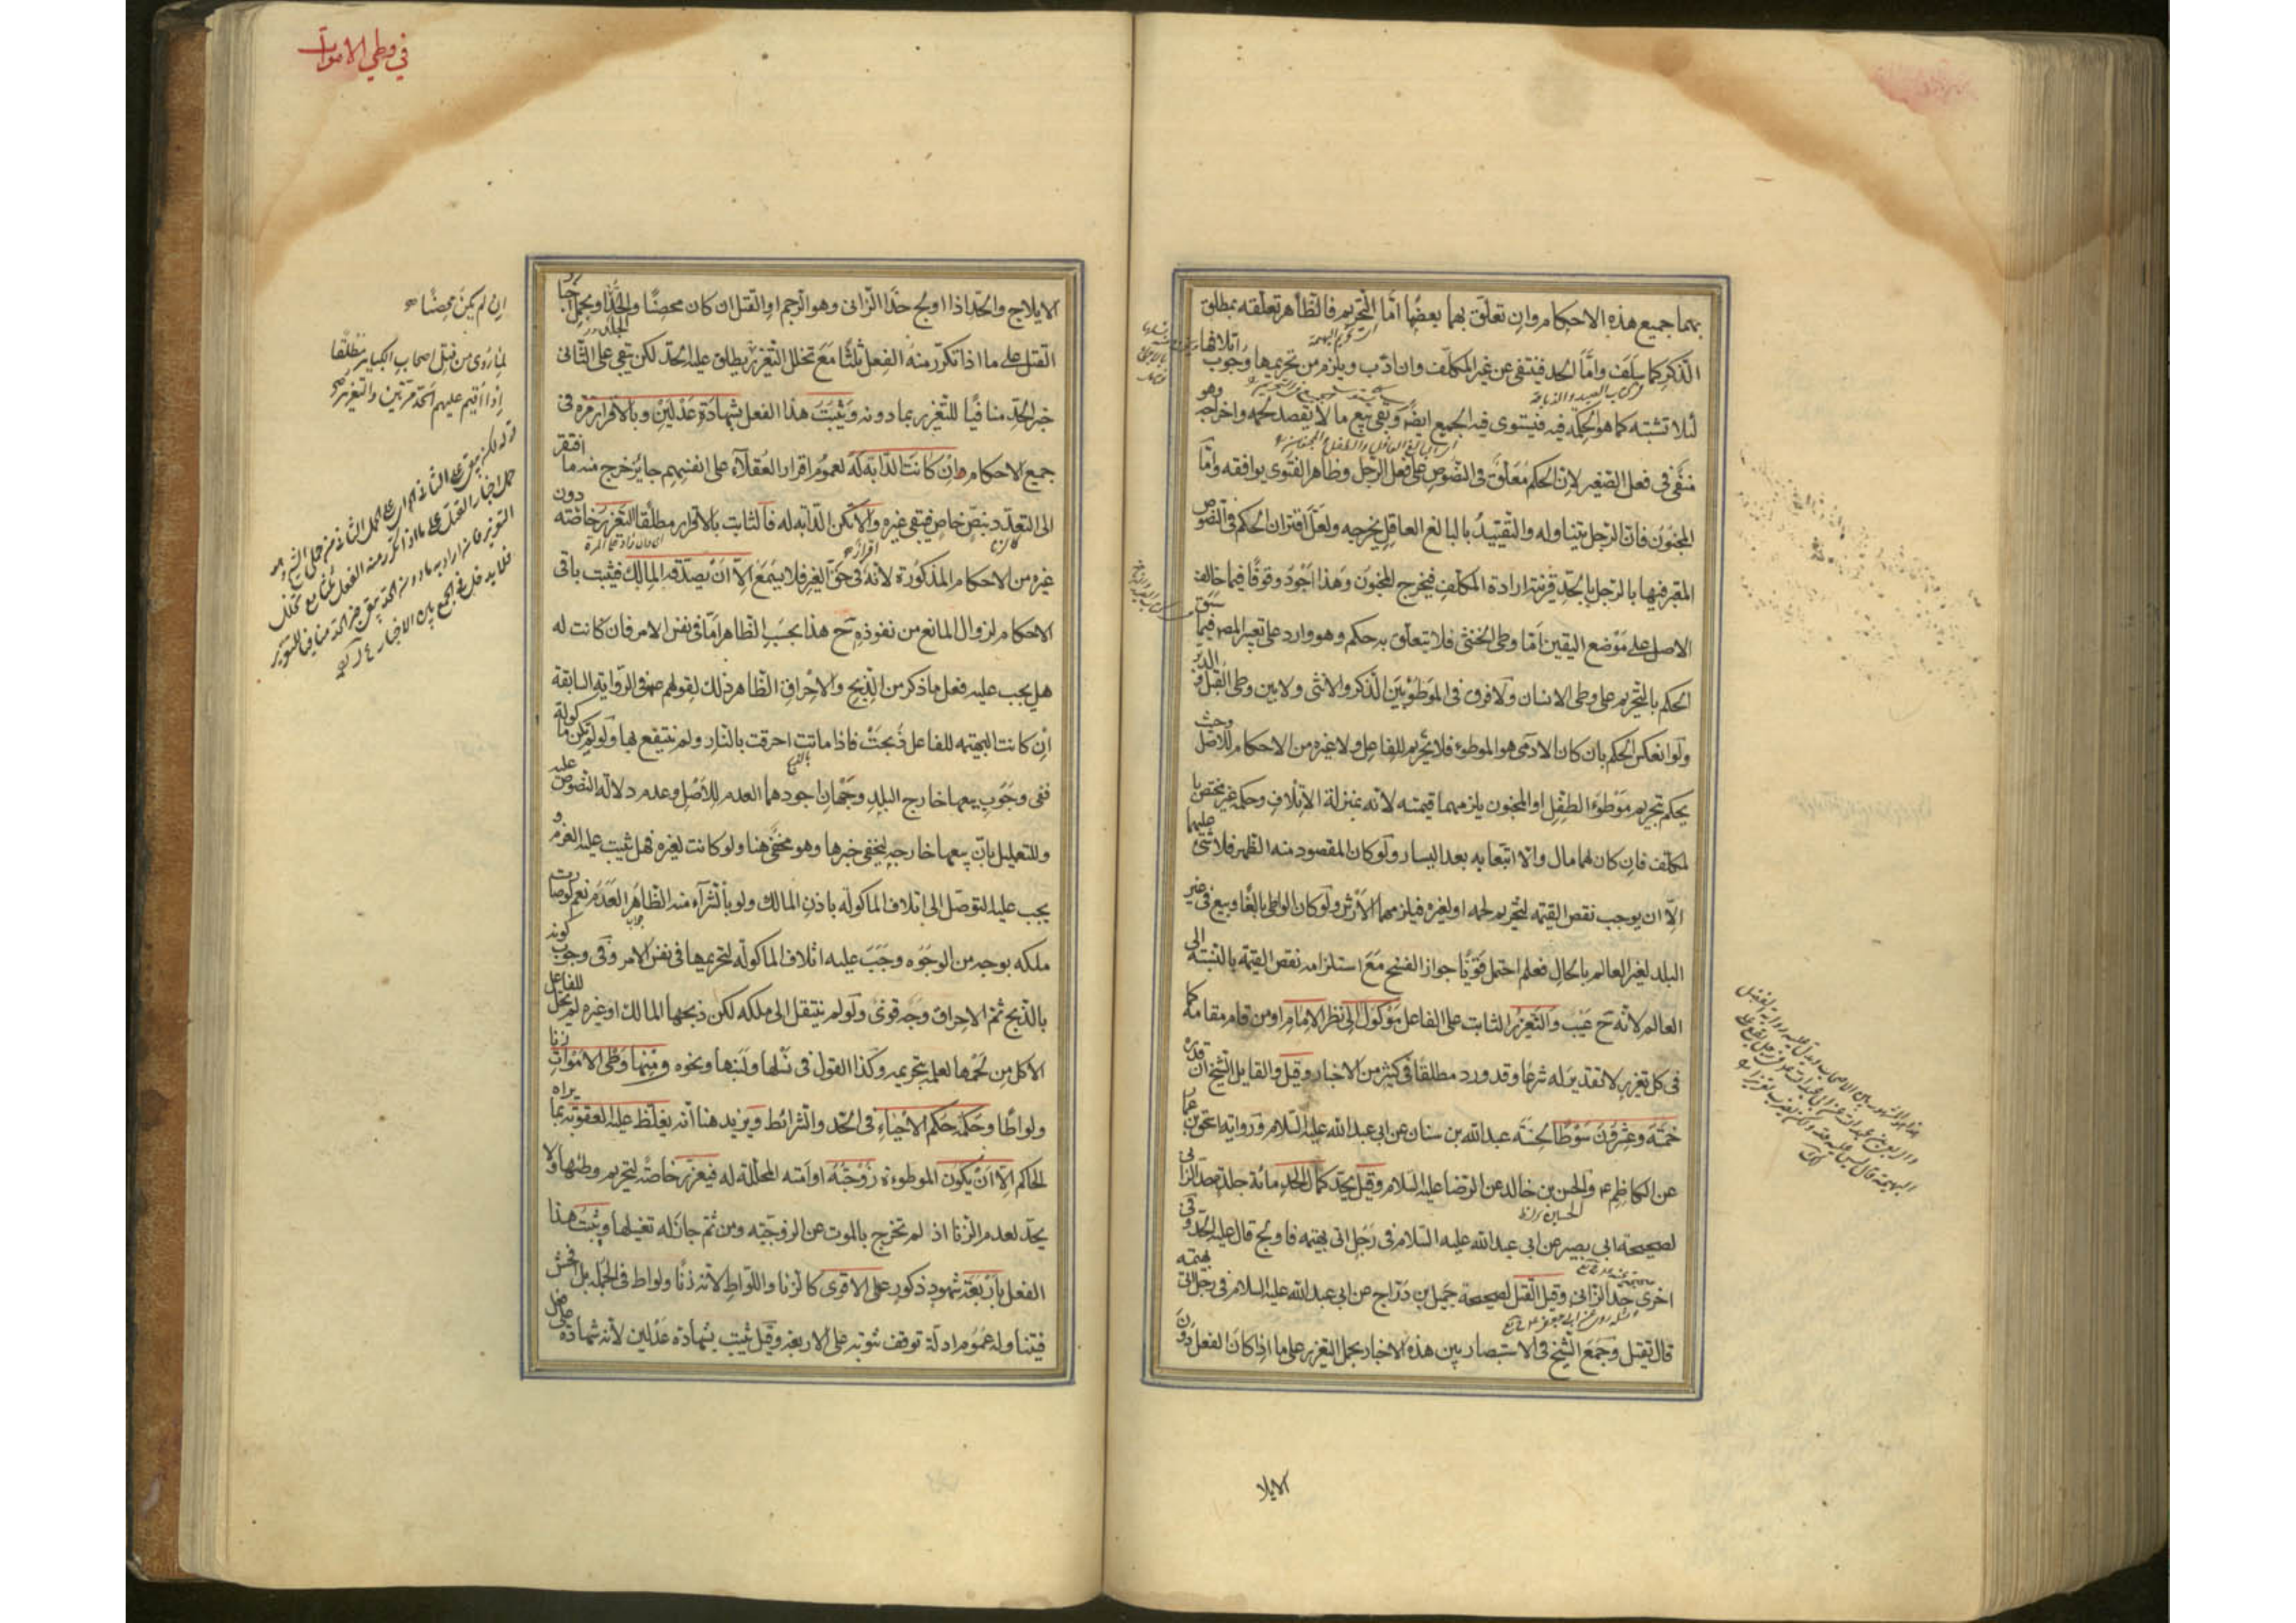 بهما جميع هذه الاحكام وان تعلق بهما بعضها امّا التحريم فالظاهر تعلّقه بمطلق
الذكر كما سلف وامّا الحد فينتفى عن غير المكلّف وان ادّب ويلزم من تحريمها وجوب اتلافها
لئلا تشتبه كما هو الحكمة فيه فيستوى فيه الجميع ايضا وبقى بيع ما لا يقصد لحمه واخراجه وهو
منفى فى فعل الصّغير لان الحكم مُعَلّق فى النصوص على فعل الرّجل وظاهر الفتوى يوافقه وامّا
المجنون فان الرّجل يتناوله والتقييد بالبالغ العاقل يخرجه ولعلّ اقتران الحكم فى النصوص
المعبر فيها بالرّجل بالحدّ قرينة ارادة المكلّف فيخرج المجنون وهذا اجود وقوفًا فيما خالف
الاصل على موضع اليقين امّا وطى الخنثى فلا يتعلّق به حكم وهو وارد على تعبير المصـ فيما سبق
الحكم بالتحريم على وطى الانسان ولا فرق فى الموطوء بين الذّكر والانثى ولا بين وطى القبل والدبر
ولو انعكس الحكم بان كان الادمى هو الموطوء فلا تحريم للفاعل ولا غيره من الاحكام للاصل وحيث
يحكم بتحريم موطوء الطفل او المجنون يلزمهما قيمته لانّه بمنزلة الاتلاف وحكمه غير مختص با
لمكلّف فان كان لهما مال والّا اتبعا به بعد اليسار ولو كان المقصود منه الظهر فلا شئ عليهما
الّا ان يوجب نقص القيمة لتحريم لحمه او لغيره فيلزمهما الارش ولو كان الواطى بالغًا وبيع فى غير
البلد لغير العالم بالحال فعلم احتمل قويًّا جواز الفسخ مع استلزامه نقص القيمة بالنسبة الى
العالم لانّه ح عيب والتعزير الثابت على الفاعل موكول الى نظر الامام او من قام مقامه كما
فى كل تعزير لا تقدير له شرعًا وقد ورد مطلقًا فى كثير من الاخبار وقيل والقايل الشيخ ان قدره
خمسة وعشرون سوطًا لحسنة عبدالله بن سنان عن ابى عبدالله عليه السّلام ورواية اسحق بن عمّا
عن الكاظم ع والحسن بن خالد عن الرّضا عليه السّلام وقيل يحدّ كمال الحد مائة جلدة حدّ الزانى
لصحيحة ابى بصير عن ابى عبدالله عليه السّلام فى رجل اتى بهيمة فاولج قال عليه الحدّ وفى
اخرى حدّ الزانى وقيل القتل لصحيحة جميل بن درّاج عن ابى عبدالله عليه السلام فى رجل اتى بهيمة
قال يقتل وجمع الشيخ فى الاستبصار بين هذه الاخبار بحمل التعزير على ما اذا كان الفعل دون
الايلا
فى وطى الاموات
الايلاج والحدّ اذا اولج حدّا الزانى وهو الرجم او القتل ان كان محصنًا والجلد
القتل على ما اذا تكرّر منه الفعل ثلثًا مع تخلل التعزير يطلق عليه الحدّ لكن يبقى على الثانى
خبر الحدّ منافيًا للتعزير بما دونه ويثبت هذا الفعل بشهادة عدلين وبالاقرار مرّة فى
جميع الاحكام ان كانت الدابّة له لعموم اقرار العقلاء على انفسهم جايز خرج منه ما افتقر
الى التعدّد بنصّ خاص فيبقى غيره والا تكن الدابة له فالثابت بالاقرار مطلقًا التعزير خاصّة دون
غيره من الاحكام المذكورة لانه اقرار فى حقّ الغير فلا يسمع الّا ان يصدّقه المالك فيثبت باقى
الاحكام لزوال المانع من نفوذه ح هذا بحسب الظاهر امّا فى نفس الامر فان كانت له
هل يجب عليه فعل ما ذكر من الذبح والاحراق الظاهر ذلك لقولهم ع فى الرواية السابقة
ان كانت البهيمة للفاعل ذُبحت فاذا ماتت احرقت بالنار ولم ينتفع بها ولو لم تكن ماكولة
ففى وجوب بيعها خارج البلد وجهان اجودهما العدم للاصل وعدم دلالة النصوص عليه
وللتعليل بانّ بيعها خارجه ليخفى خبرها وهو مخفى هنا ولو كانت لغيره فهل يثبت عليه الغرم و
يجب عليه التوصّل الى اتلاف الماكولة باذن المالك ولو بالشرآء منه الظاهر العدم نعم لو صارت
ملكه بوجه من الوجوه وجب عليه اتلاف الماكولة لتحريمها فى نفس الامر وفى وجوب كونه
بالذبح ثمّ الاحراق وجه قوىّ ولو لم ينتقل الى ملكه لكن ذبحها المالك او غيره لم يحل للفاعل
الاكل من لحمها لعلمه بتحريمه وكذا القول فى نسلها ولبنها ونحوه ومنها وطى الاموات زنا
ولواطًا وحكمه حكم الاحياء فى الحدّ والشرائط ويزيد هنا انّه يغلّظ عليه العقوبة بما يراه
الحاكم الّا ان يكون الموطوءة زوجته او امته المحلّلة له فيعزّر خاصّة لتحريم وطئها ولا
يحدّ لعدم الزنا اذ لم تخرج بالموت عن الزوجيّة ومن ثمّ جاز له تغسيلها ويثبت هذا
الفعل باربعة شهود ذكور على الاقوى كالزنا واللواط لانّه زنًا ولواط فى الجملة بل افحش
فيتناوله عموم ادلّة توقف ثبوته على الاربعة وقيل يثبت بشهادة عدلين لانّه شهادة على
ان لم يكن محصنًا
لما روى من قتل اصحاب الكباير مطلقًا
اذا اقيم عليهم الحدّ مرّتين والتعزير